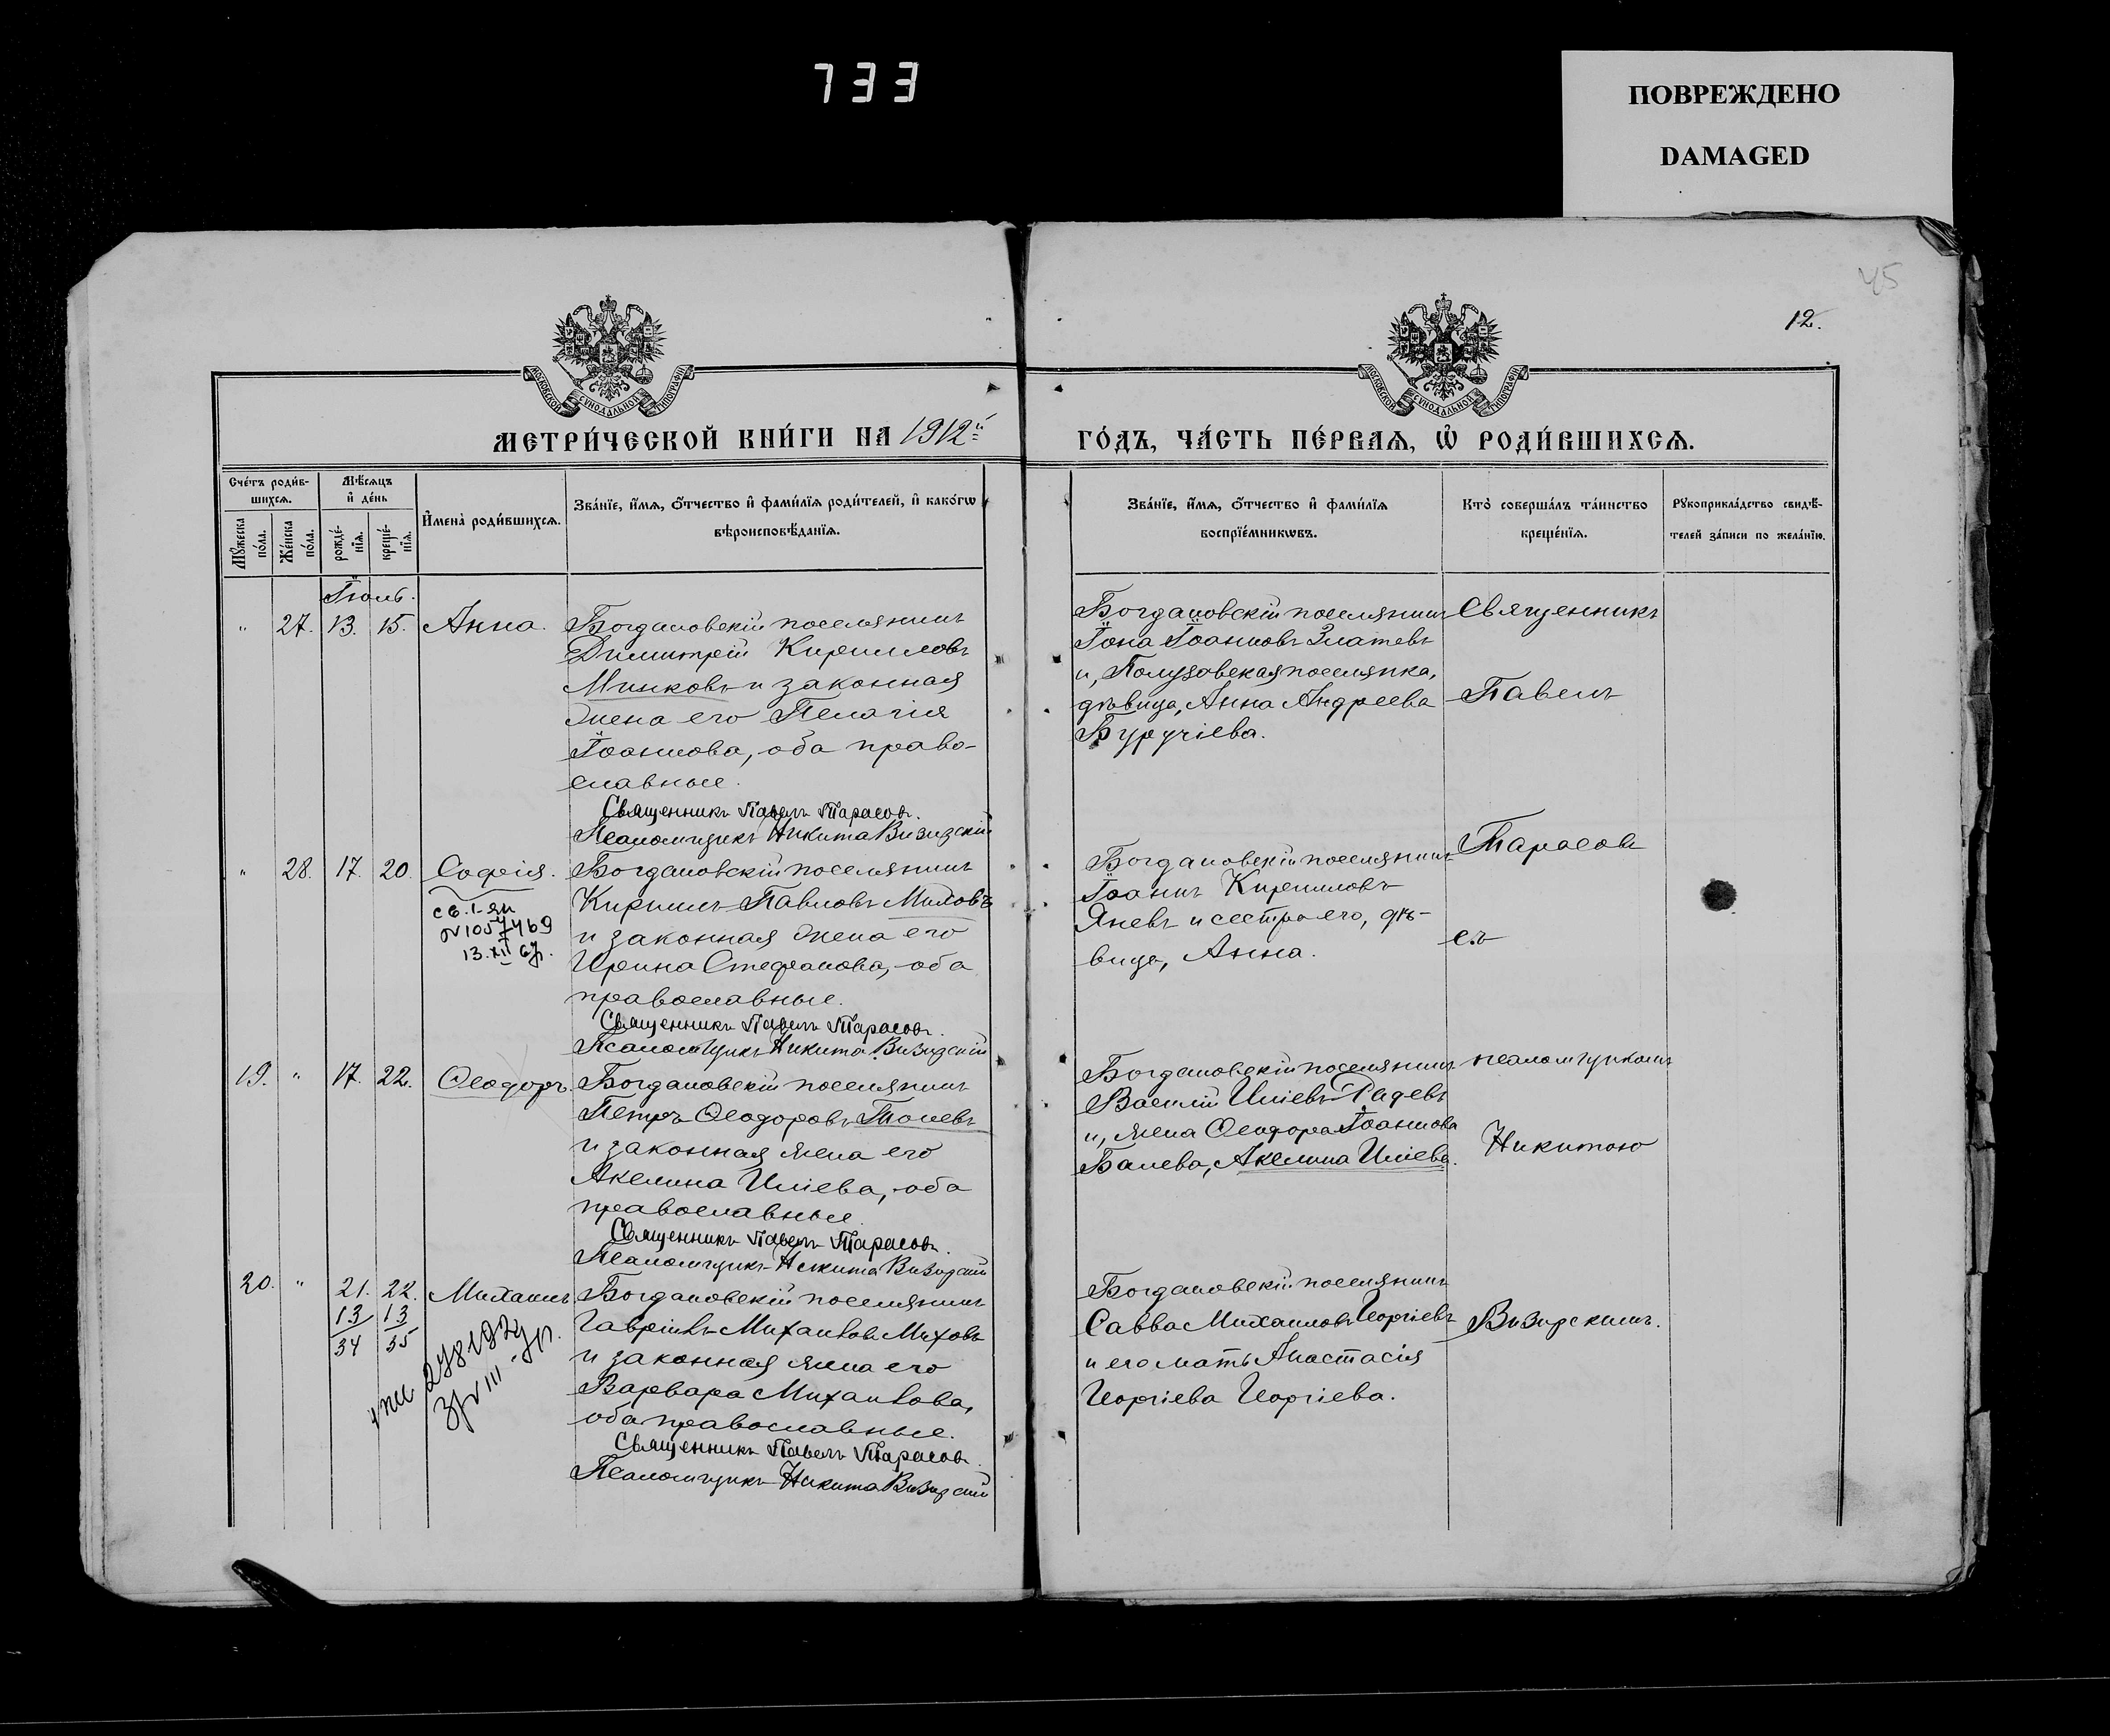 733
ПОВРЕЖДЕНО
DAMAGED
45
12.
МОСКОВСКОЙ СУНОДАЛЬНОЙ ТИПОГРАФІИ
МОСКОВСКОЙ СУНОДАЛЬНОЙ ТИПОГРАФІИ
МЕТРИ́ЧЕСКОЙ КНИ́ГИ НА 1912й
ГО́ДЪ, ЧА́СТЬ ПЕ́РВАѦ, Ѡ҆ РОДИ́ВШИХСѦ.
Сче́тъ роди́в-
шихсѧ.
Мѣ́сѧцъ
и҆ де́нь
Мꙋ́жеска
по́ла.
Же́нска
по́ла.
рожде́-
нїѧ.
креще́-
нїѧ.
И҆мена̀ роди́вшихсѧ.
Зва́нїе, и҆́мѧ, ѻ҆́тчество и҆ фами́лїѧ роди́телей, и҆ како́гѡ
вѣроисповѣ́данїѧ.
Зва́нїе, и҆́мѧ, ѻ҆́тчество и҆ фами́лїѧ
воспрїе́мникѡвъ.
Кто̀ соверша́лъ та́инство
креще́нїѧ.
Рꙋкоприкла́дство свидѣ́-
телей за́писи по жела́нїю.
Іюль.
" 27. 13. 15. Анна.
Богдановскій поселянинъ
Димитрій Кирилловъ
Минковъ и законная
жена его Пелагія
Іоаннова, оба право-
славные.
Священникъ Павелъ Тарасовъ.
Псаломщикъ Никита Визирскій
Богдановскій поселянинъ
Іона Іоанновъ Златевъ
и, Полузовская поселянка,
дѣвица, Анна Андреева
Буручіева.
Священникъ
Павелъ
" 28. 17. 20. Софія.
св. I-ЯП
№1057469
13.XII 67г.
Богдановскій поселянинъ
Кириллъ Павловъ Миховъ
и законная жена его
Ирина Стефанова, оба
православные.
Священникъ Павелъ Тарасовъ.
Псаломщикъ Никита Визирскій
Богдановскій поселянинъ
Іоаннъ Кирилловъ
Яневъ и сестра его, дѣ-
вица, Анна.
Тарасовъ
съ
19. " 17. 22. Ѳеодоръ.
Богдановскій поселянинъ
Петръ Ѳеодоровъ Тоневъ
и законная жена его
Акелина Иліева, оба
православные.
Священникъ Павелъ Тарасовъ.
Псаломщикъ Никита Визирскій
Богдановскій поселянинъ
Василій Иліевъ Радевъ
и, жена Ѳеодора Іоаннова
Банева, Акелина Иліева.
псаломщикомъ
Никитою
20. " 21. 22. Михаилъ
13 13
34 35
Богдановскій поселянинъ
Гавріилъ Михаиловъ Миховъ
и законная жена его
Варвара Михаилова,
оба православные.
Священникъ Павелъ Тарасовъ.
Псаломщикъ Никита Визирскій
Богдановскій поселянинъ
Савва Михаиловъ Георгіевъ
и его мать Анастасія
Георгіева Георгіева.
Визирскимъ.